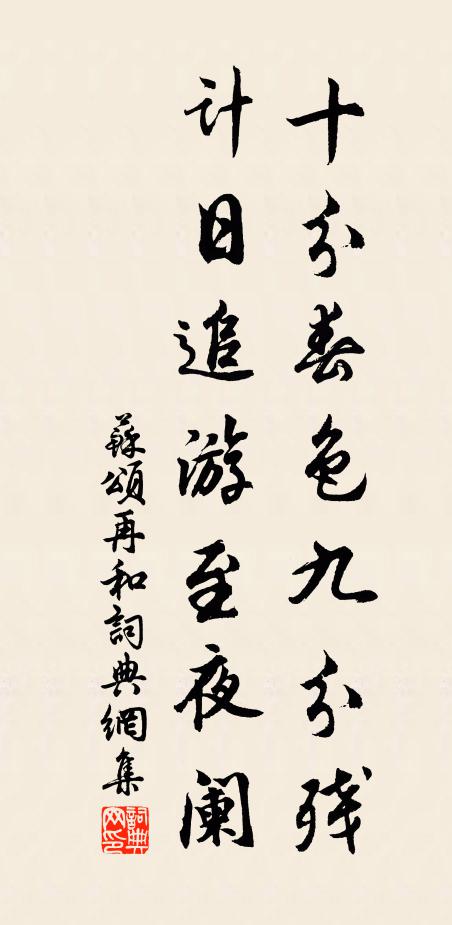 十分春色九分残
计日追游至夜阑
蘇頌再和詞典網集
詞典
网印